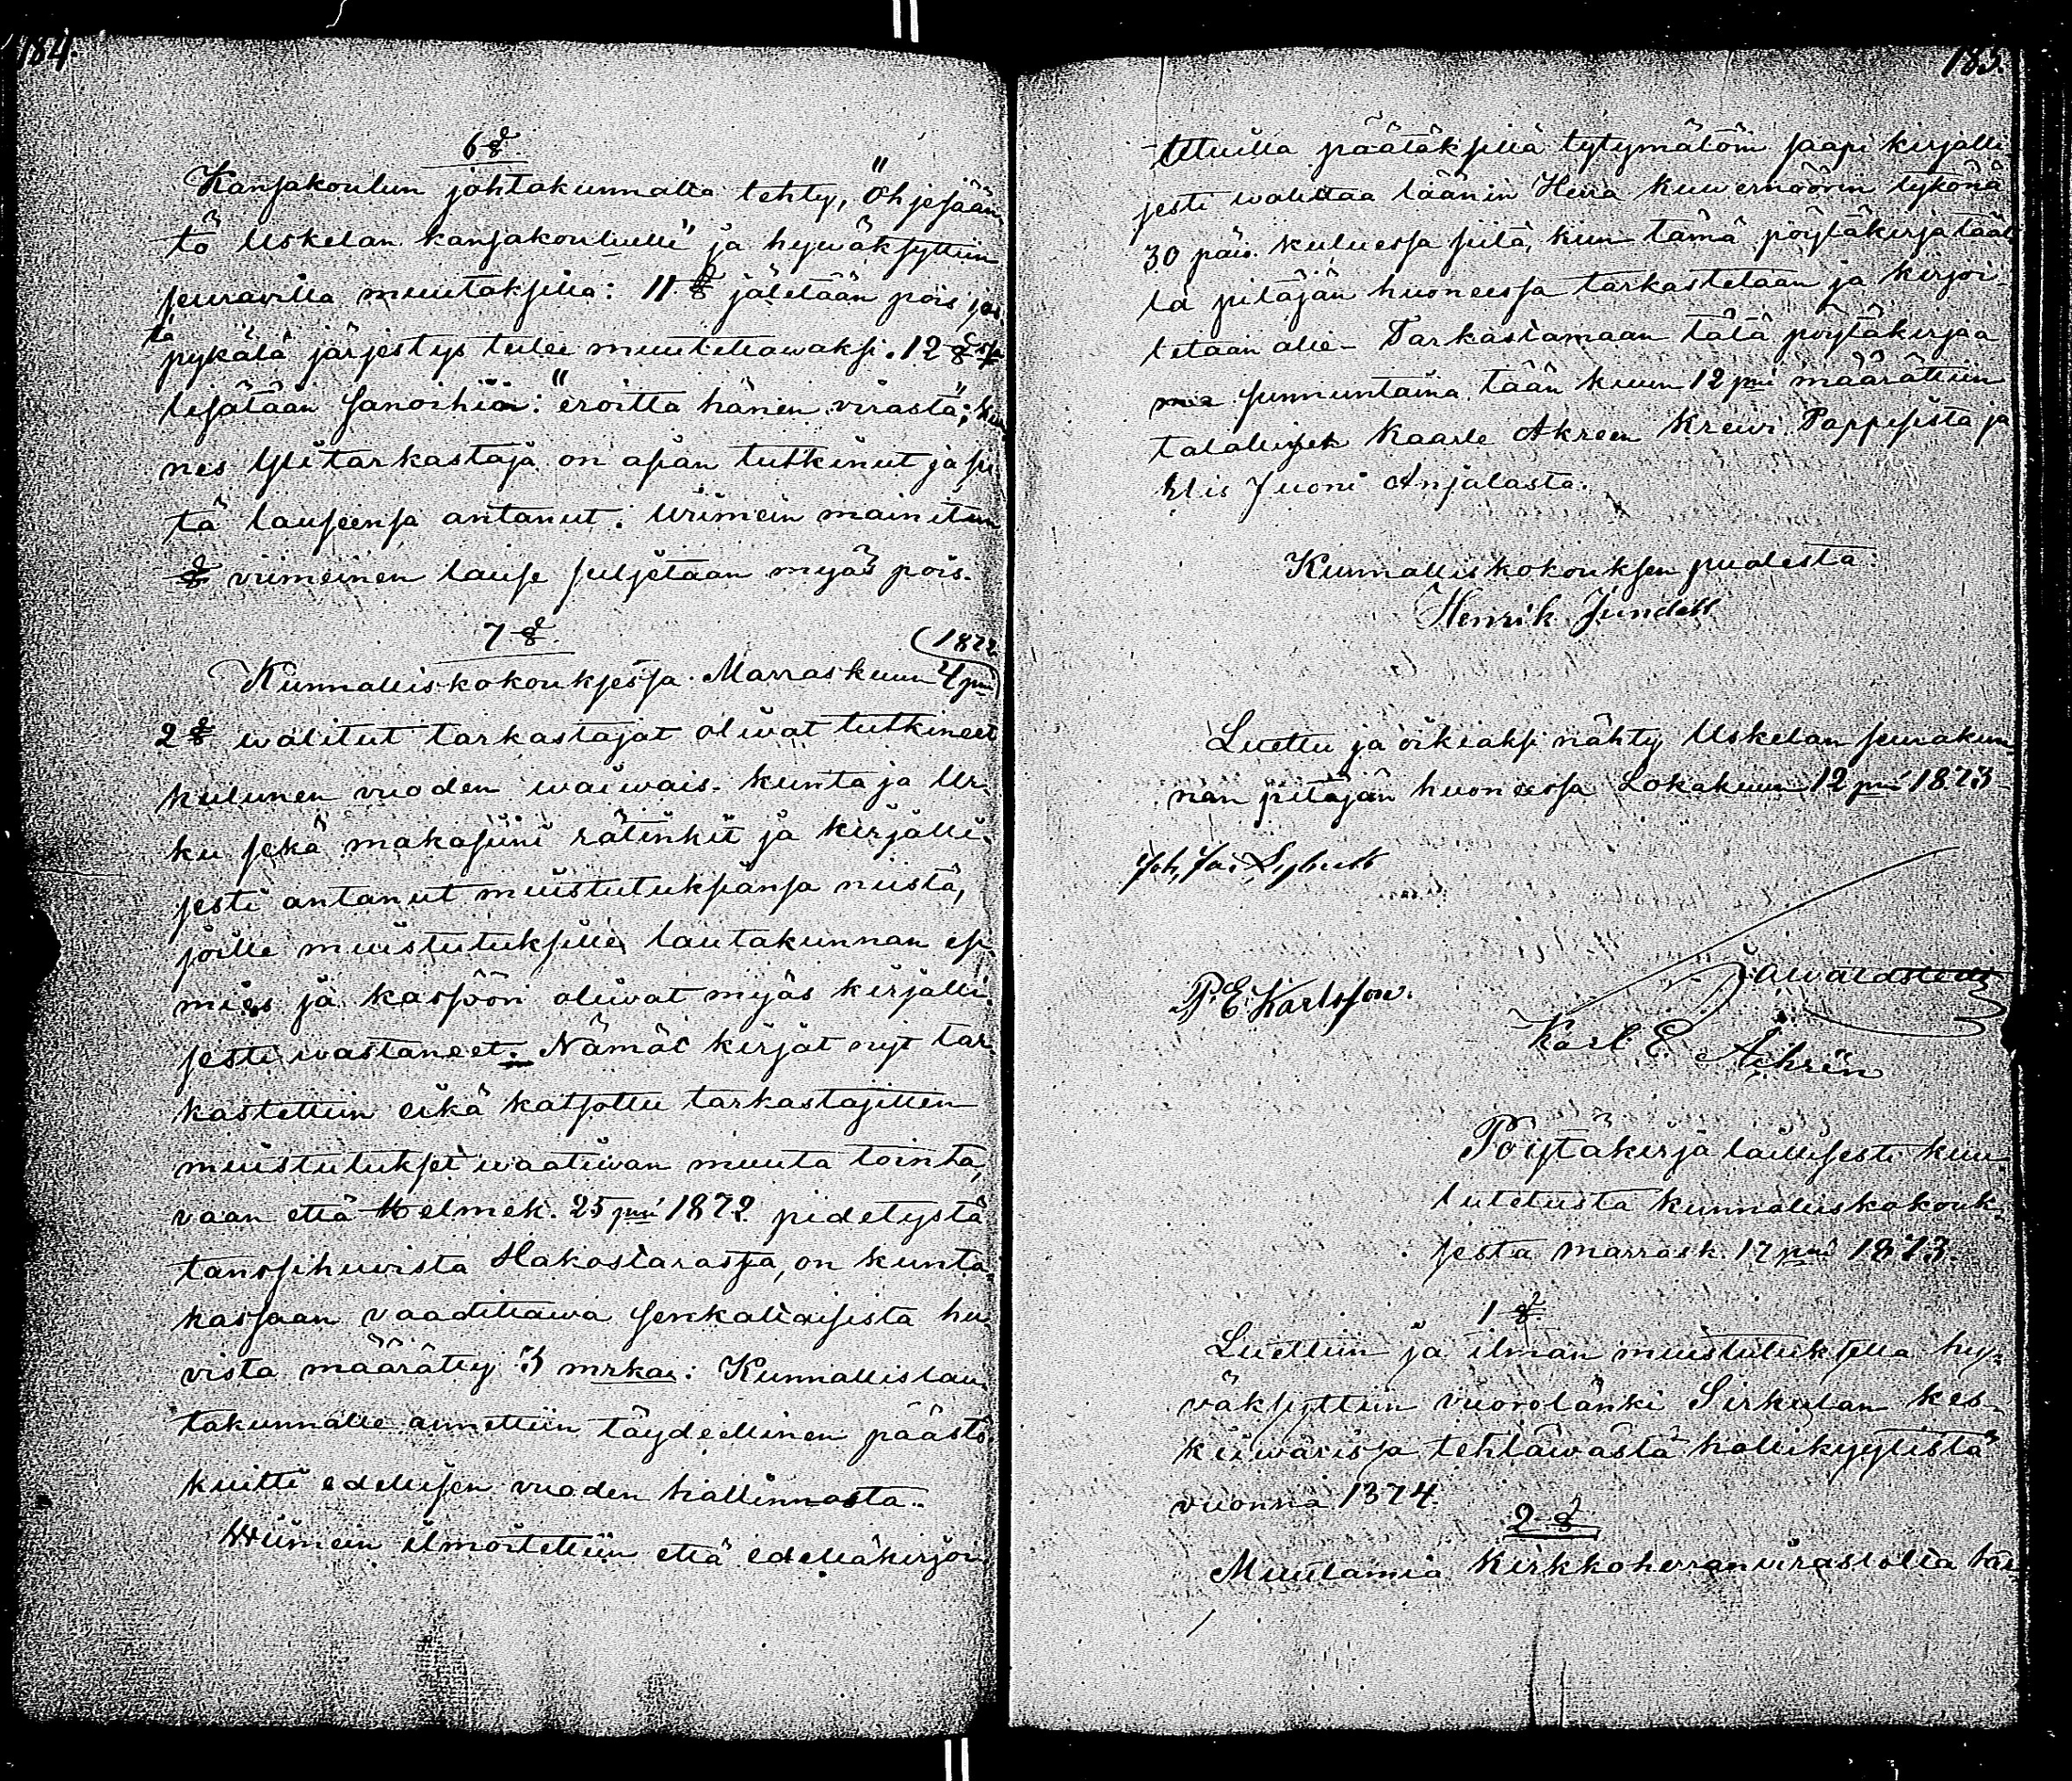 184.
6 §.
Kansakoulun johtokunnalta tehty, "Ohjesään-
tö Uskelan kansakoululle" ja hywäksyttiin
seuravilla muutoksilla: 11 § jätetään pois jos-
ta pykälä järjestys tulee muutettawaksi. 12 §ssä
lisätään sanoihin: "eroitta hänen virasta"; kun-
nes Ylitarkastaja on asian tutkinut ja sii-
tä lauseensa antanut. Wiimein mainitun
§ viimeinen lause suljetaan myäs pois.
7 §.
Kunnalliskokouksessa Marraskuun 4 pnä (1872)
2 § walitut tarkastajat oliwat tutkineet
kulunen vuoden waiwais- kunta ja kir-
ku sekä makasiini rätinkit ja kirjälli-
sesti antanut muistutuksiansa niistä,
joille muistutuksille lautakunnan esi-
mies ja kassööri oliwat myäs kirjälli-
sesti wastaneet. Nämät kirjat nyt tar-
kastettiin eikä katsottu tarkastajitten
muistutukset waatiwan muuta tointa,
vaan että Helmek. 25 pnä 1872 pidetystä
tanssihuvista Hakastarossa, on kunta-
kassaan vaadittawa senkaltaisista hu-
vista määrätty 3 mrkaa: Kunnallislau-
takunnalle annettiin täydellinen päästö-
kuitti edellisen vuoden hallinnosta.
Wiimein ilmoitettiin että edelläkirjoi-
185.
-tetuilla päätöksillä tytymätöin saapi kirjalli-
sesti walittaa läänin Herra Kuwernöörin tykönä
30 päiv. kuluessa siitä, kun tämä pöytäkirja tääl-
lä pitäjän huoneessa tarkastetaan ja kirjoi-
tetaan alle. Tarkastamaan tätä pöytäkirjaa
sunnuntaina tään kuun 12 pnä määrättiin
talalliset Kaarle Akreen Kreiwi Pappisista ja
Elis Juoni Anjalasta.
Kunnalliskokouksen puolesta:
Henrik Jundell
Luettu ja oikiaksi nähty Uskelan seurakun-
nan pitäjän huoneessa Lokakuun 12 pnä 1873
P. E. Karlsson.
Karl E Åkrén
Pöytäkirja laillisesti kuu-
lutetusta kunnalliskokouk-
sesta marrask. 17 pnä 1873.
1 §.
Luettiin ja ilman muistutuksetta hy-
väksyttiin vuorolänki Sirkulan kes-
kiiwärissä tehtäwästä hollikyytistä
vuonna 1874.
2 §
Muutamia Kirkkoherranwirastolta